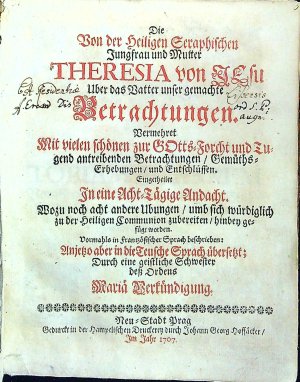 Die
Von der Heiligen Seraphischen
Jungfrau und Mutter
THERESIA von JEsu
Uber das Vatter unser gemachte
Betrachtungen.
Vermehret
Mit vielen schönen zur GOtts-Forcht und Tu-
gend antreibenden Betrachtungen / Gemüths-
Erhebungen / und Entschlüssen.
Eingetheilet
In eine Acht-Tägige Andacht.
Wozu noch acht andere Ubungen / umb sich würdiglich
zu der Heiligen Communion zubereiten / hinbey ge-
fügt worden.
Vormahls in Frantzösischer Sprach beschrieben:
Anjetzo aber in die Teutsche Sprach übersetzt;
Durch eine geistliche Schwester
deß Ordens
Mariä Verkündigung.
Neu-Stadt Prag
Gedruckt in der Hampelischen Druckerey durch Johann Georg Hoffäcker /
Im Jahr 1707.